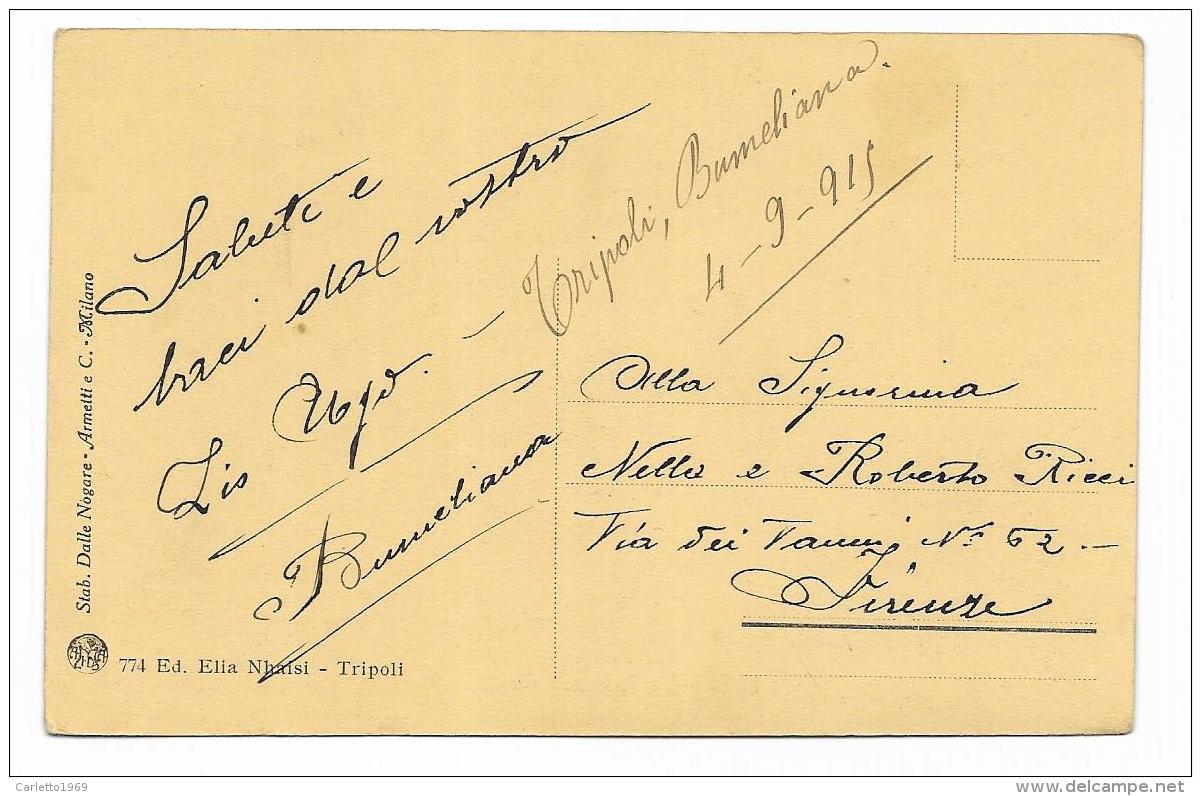 Tripoli, Bumeliana.
4-9-915
Saluti e
baci dal vostro
Zio Ugo. -
Bumeliana
Alla Signorina
Nella e Roberto Ricci
Via dei Vanni, No 62 -
Firenze
Stab. Dalle Nogare - Armetti e C. - Milano
774 Ed. Elia Nhaisi - Tripoli
Carletto1969
delcampe.net